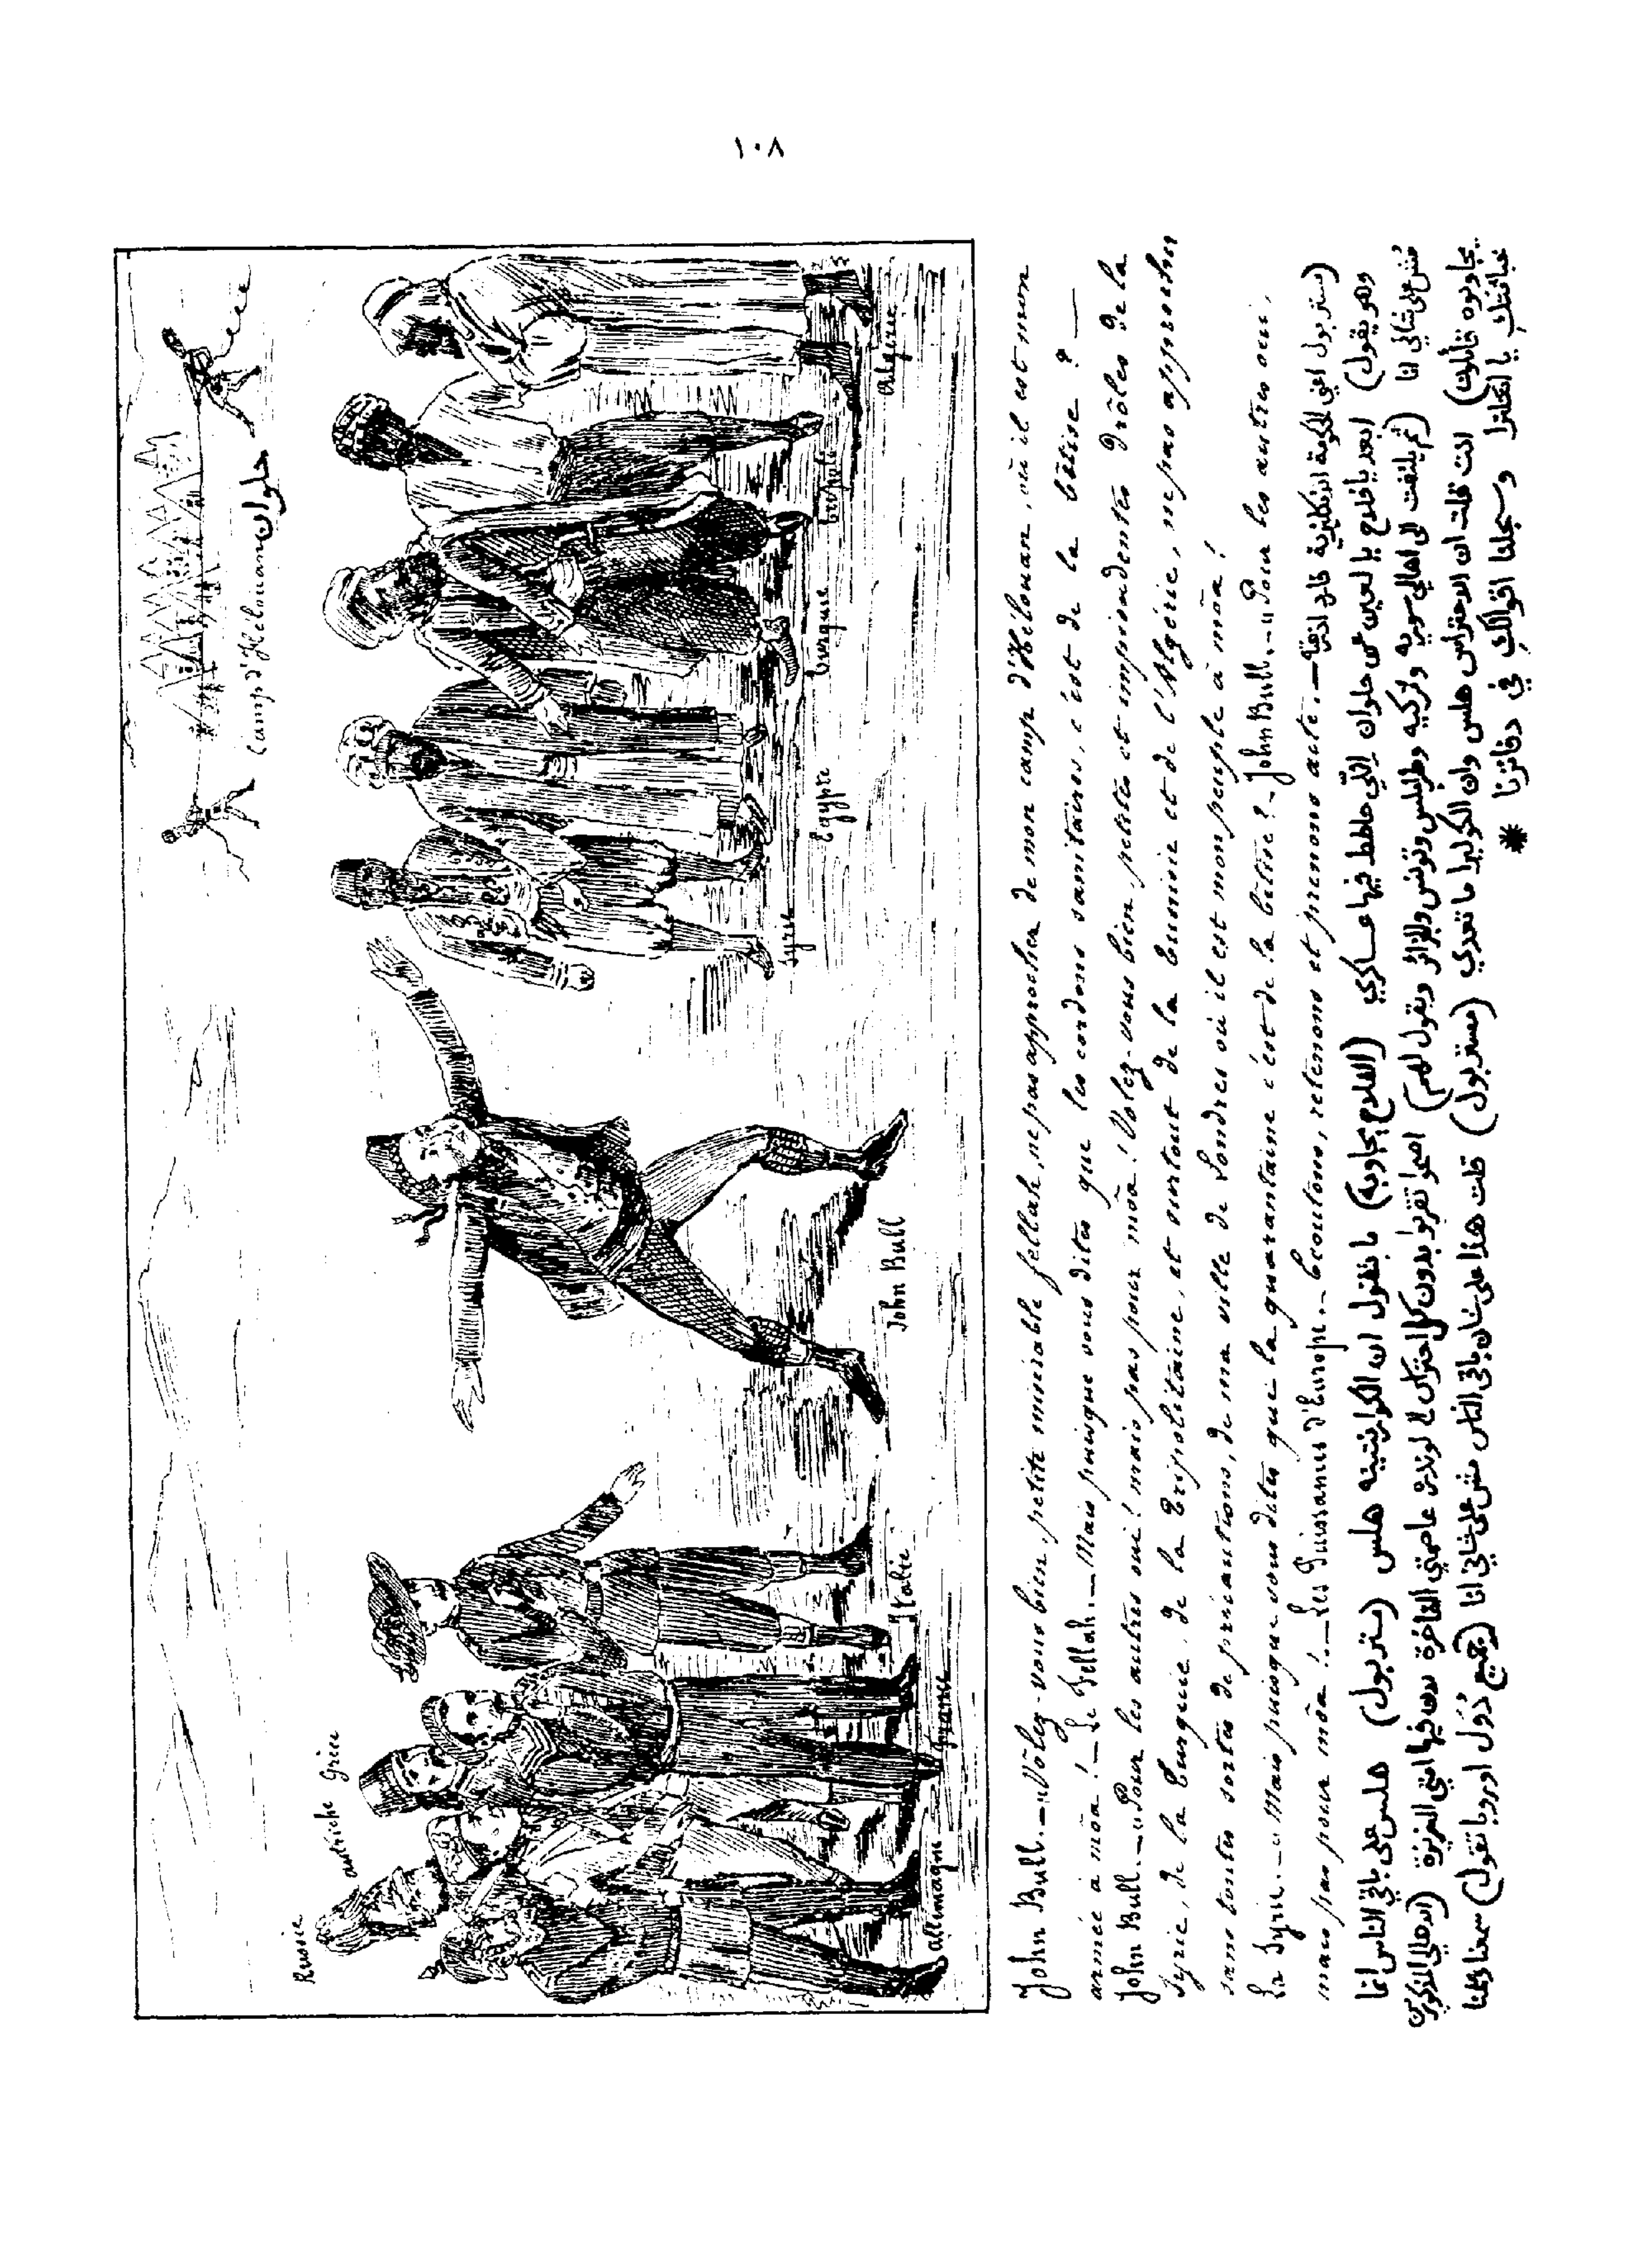 ١٠٨
Camp d'Hélouan حلوان
Russie
autriche
Grèce
allemagne
France
Italie
John Bull
Syrie
Egypte
Turquie
Tripoli
Algérie
John Bull. — "Vôlez-vous bien, petite misérable fellah, ne pas approcher de mon camp d'Hélouan, où il est mon
armée à môa! — Le Fellah. — Mais puisque vous dites que les cordons sanitaires, c'est de la bêtise? —
John Bull. — "Pour les autres oui! mais pas pour môa! Vôlez-vous bien petites et impudentes drôles de la
Syrie, de la Turquie, de la Tripolitaine, et surtout de la Tunisie et de l'Algérie, ne pas approcher
sans toutes sortes de précautions, de ma ville de Londres où il est mon peuple à môa!
La Syrie. — "Mais puisque vous dites que la quarantaine c'est de la bêtise? — John Bull. — "Pour les autres oui,
mais pas pour môa! — Les Puissances d'Europe. — Ecoutons, retenons et prenons acte. —
(مستر بول اعني الحكومة الانكليزية طارد
وهو يقول) ابعد يا فلاح يا لعين عن حلوان اللي حاطط فيها عساكري (الفلاح يجاوبه) ما بتقول ان الكورنتينه هلس (مستر بول) هلس على باقي الناس انما
مش على شاني انا (ثم يلتفت الى اهالي سوريه وتركيه وطرابلس وتونس والجزائر ويقول لهم) اصحوا تقربوا بدون كل احتراس لا لوندره عاصمتي الفاخرة لان فيها امتي العزيزة (الاهالي المذكورين
يجاوبوه قائلين) انت قلت ان الاحتراس هلس وان الكوليرا ما تعدي (مستر بول) قلت هذا على شان باقي الناس مش على شاني انا (جميع دول اوروبا تقول) سمعنا وحفظنا
يا انكلترا وسجلنا اقوالك في دفاترنا *